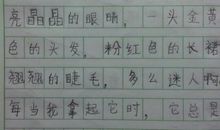 亮晶晶的眼睛，一头金黄
色的头发，粉红色的长裙
翘翘的睫毛，多么迷人啊
每当我拿起它时，它总是